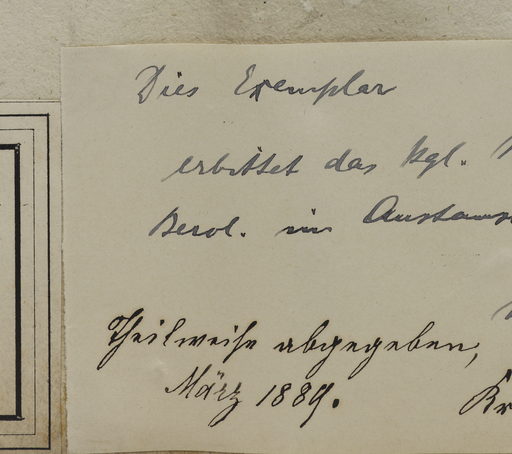 Dies Exemplar
erbittet das kgl.
Berol. im Austausc
Theilweise abgegeben,
März 1889.
Kr